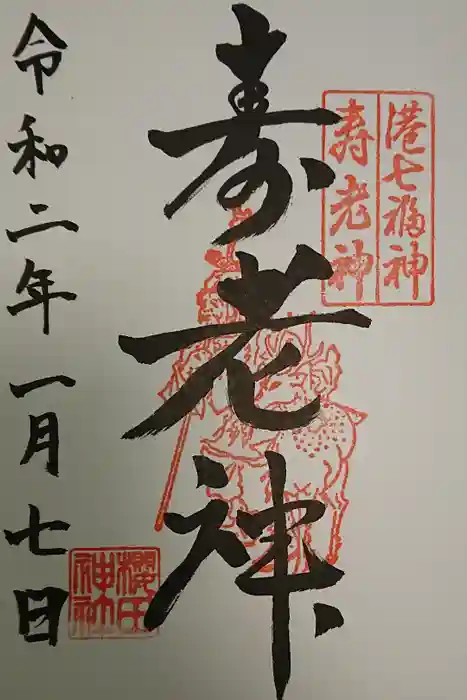 港七福神
寿老神
寿老神
令和二年一月七日
櫻田
神社